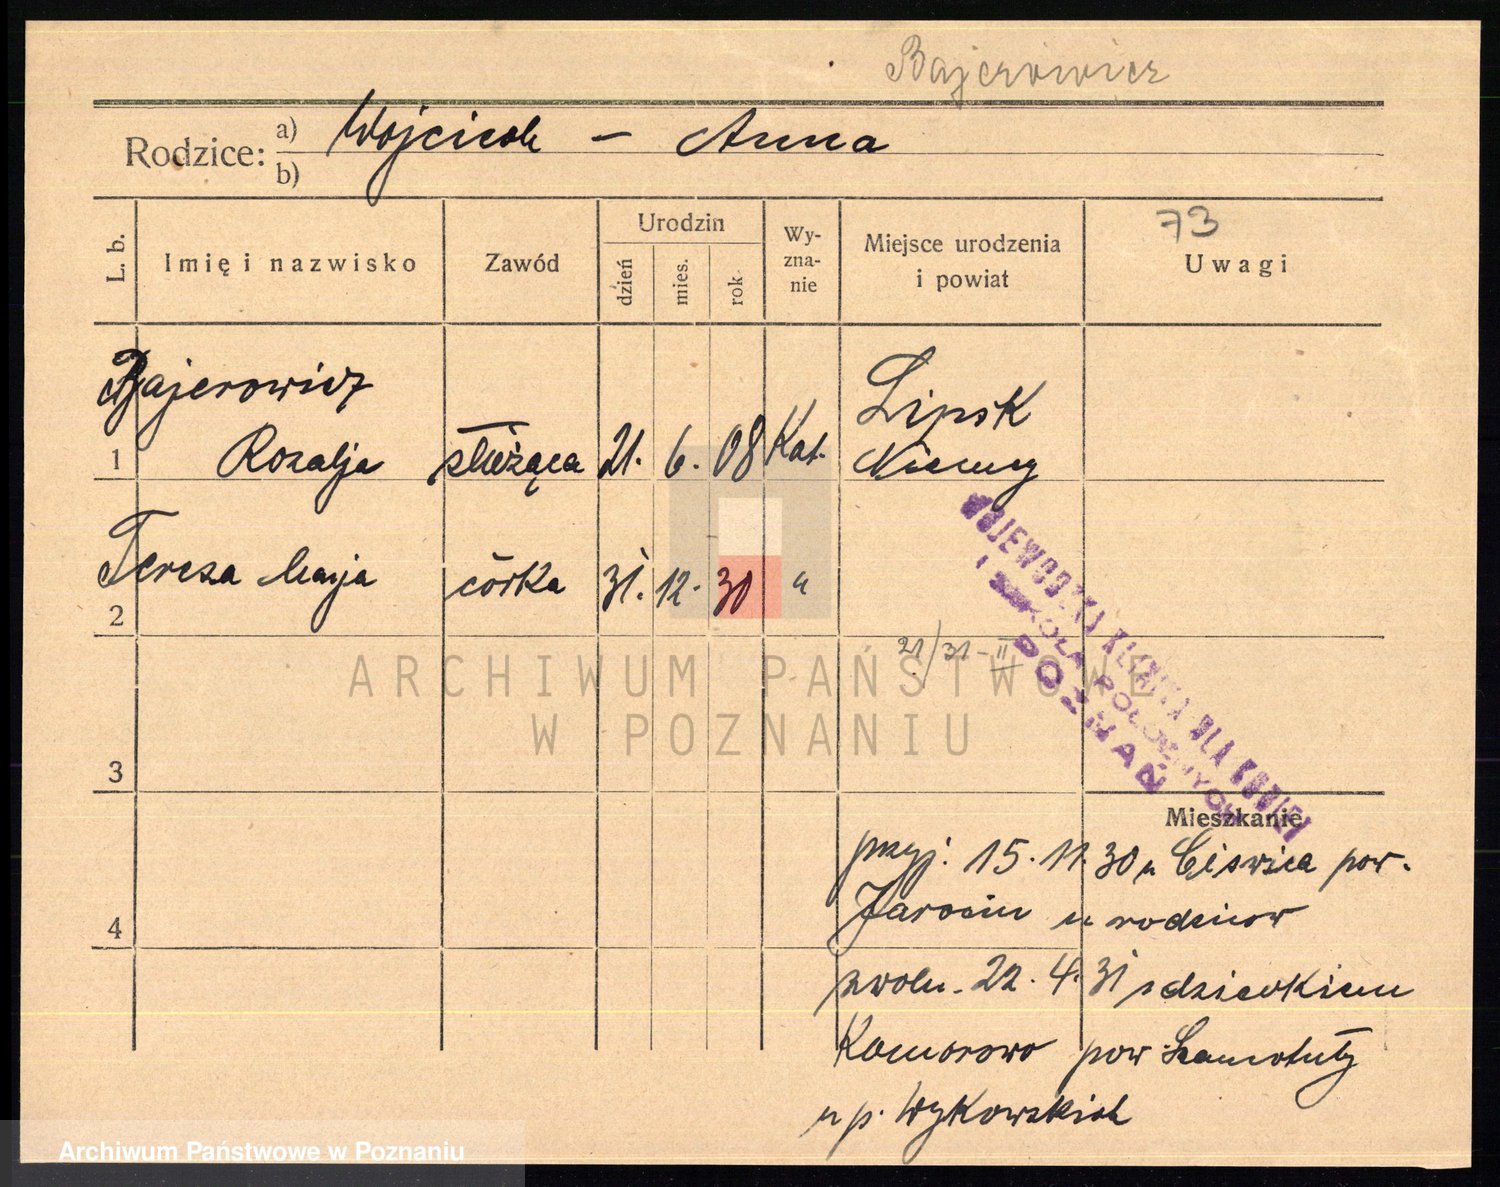 Bajerowicz
Rodzice: a) Wojciech – Anna
b)
L. b.
Imię i nazwisko
Zawód
Urodzin
dzień
mies.
rok
Wy-
zna-
nie
Miejsce urodzenia
i powiat
73
Uwagi
Bajerowicz
1 Rozalja służąca 21. 6. 08 Kat. Lipsk
Niemcy
2 Teresa Marja córka 31. 12. 30 "
21/31-II
WOJEWÓDZKA KLINIKA DLA KOBIET
I SZKOŁA POŁOŻNYCH
POZNAŃ
3
Mieszkanie
przyj. 15.11.30 z Ciświca pow.
4 Jarocin u rodziców
zwoln. 22.4.31 z dzieckiem
Komorowo pow Szamotuły
u p. Wykowskich
ARCHIWUM PAŃSTWOWE
W POZNANIU
Archiwum Państwowe w Poznaniu